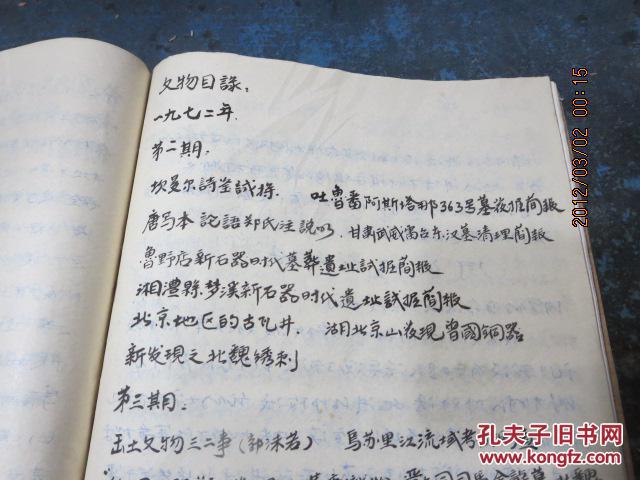 文物目録：
一九七二年.
第二期.
坎曼尔詩箋試探. 吐魯番阿斯塔那363号墓发掘简報
唐写本論語郑氏注說明. 甘肃武威雷台东汉墓清理简報
魯野店新石器时代墓葬遺址試掘简报
湘澧縣梦溪新石器时代遺址試掘简报
北京地区的古瓦井. 湖北京山发現曾國铜器
新发現之北魏绣刺
第三期.
出土文物二三事（郭沫若） 烏苏里江流域考
晋 司馬金龍墓 北魏
2012/03/02 00:15
孔夫子旧书网